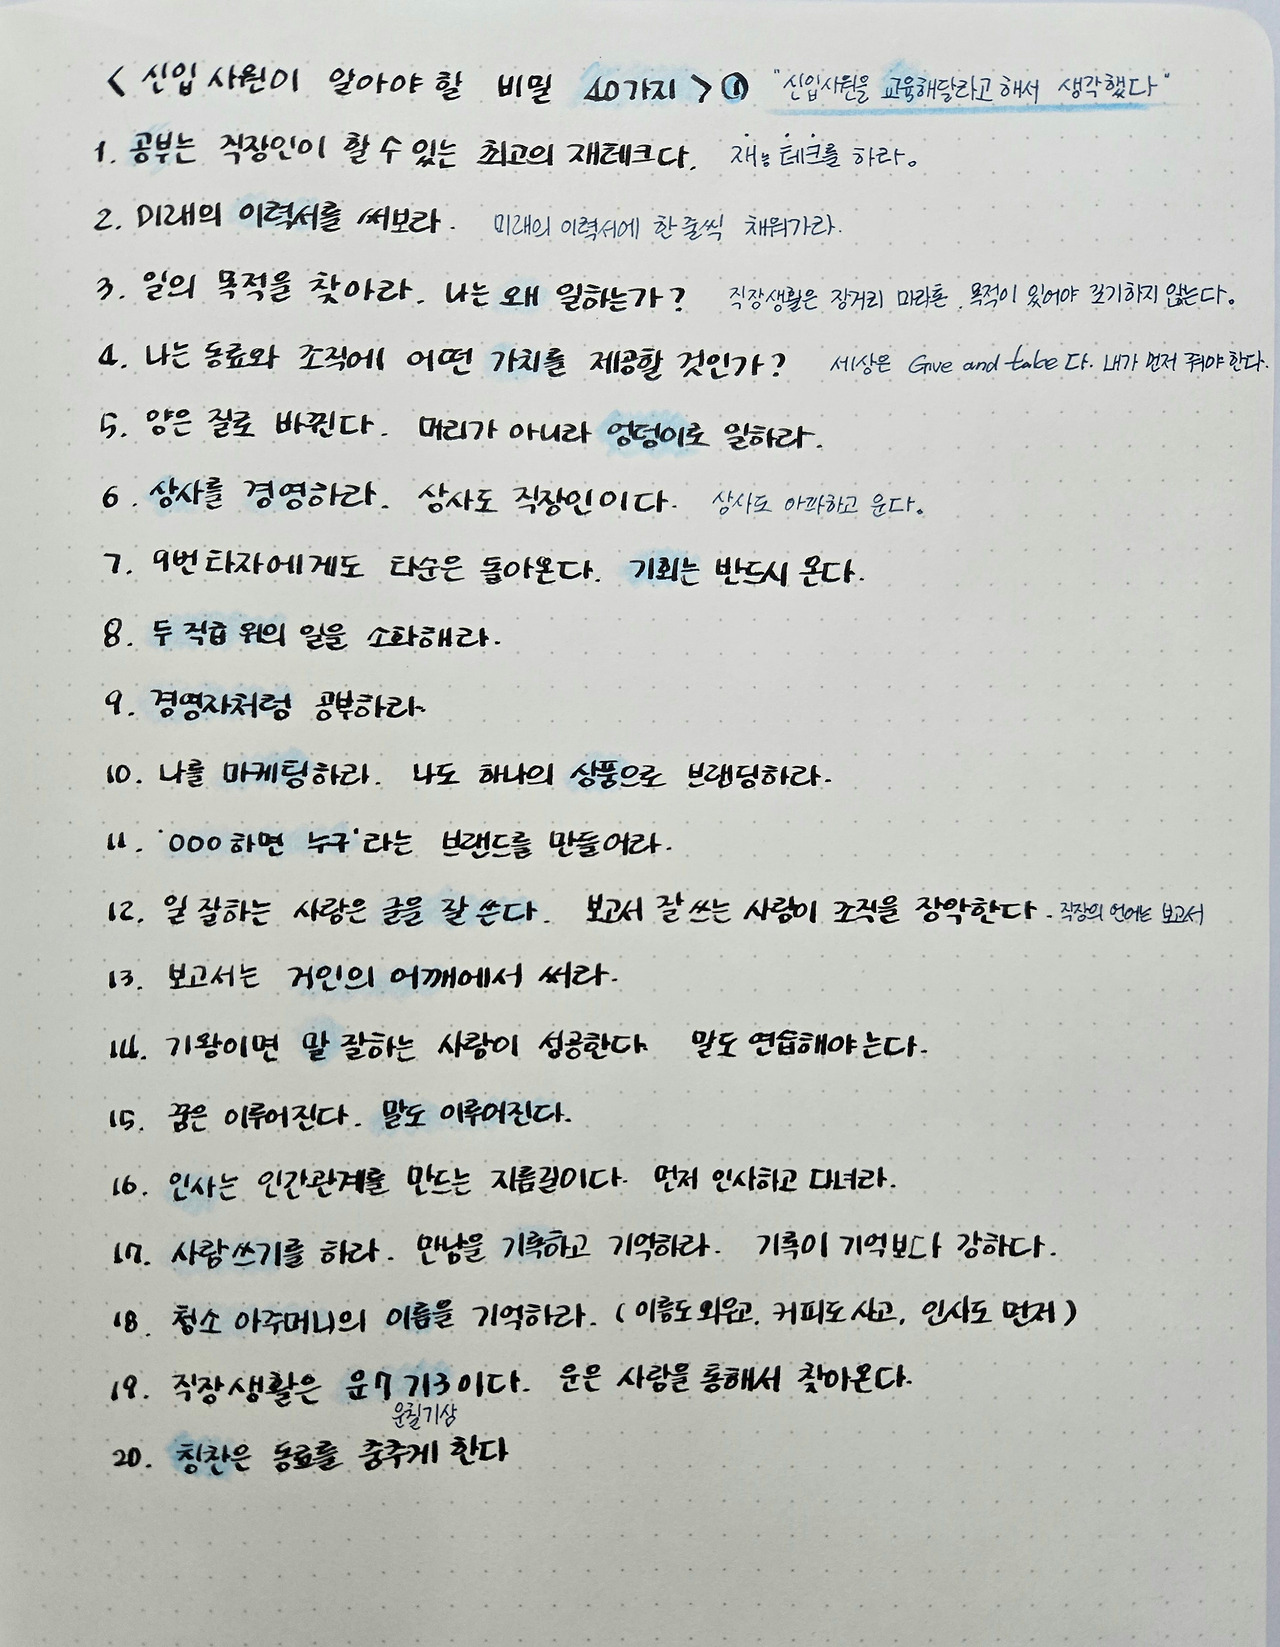 < 신입사원이 알아야 할 비밀 40가지 > ① "신입사원을 교육해달라고 해서 생각했다"
1. 공부는 직장인이 할 수 있는 최고의 재테크다. 재능테크를 하라.
2. 미래의 이력서를 써보라. 미래의 이력서에 한 줄씩 채워가라.
3. 일의 목적을 찾아라. 나는 왜 일하는가? 직장생활은 장거리 마라톤. 목적이 있어야 포기하지 않는다.
4. 나는 동료와 조직에 어떤 가치를 제공할 것인가? 세상은 Give and take다. 내가 먼저 줘야한다.
5. 양은 질로 바뀐다. 머리가 아니라 엉덩이로 일하라.
6. 상사를 경영하라. 상사도 직장인이다. 상사도 아파하고 운다.
7. 9번타자에게도 타순은 돌아온다. 기회는 반드시 온다.
8. 두 직급 위의 일을 소화해라.
9. 경영자처럼 공부하라.
10. 나를 마케팅하라. 나도 하나의 상품으로 브랜딩하라.
11. '000하면 누구'라는 브랜드를 만들어라.
12. 일 잘하는 사람은 글을 잘 쓴다. 보고서 잘 쓰는 사람이 조직을 장악한다. 직장의 언어는 보고서
13. 보고서는 거인의 어깨에서 써라.
14. 기왕이면 말 잘하는 사람이 성공한다 말도 연습해야 는다.
15. 꿈은 이루어진다. 말도 이루어진다.
16. 인사는 인간관계를 만드는 지름길이다. 먼저 인사하고 다녀라.
17. 사람쓰기를 하라. 만남을 기록하고 기억하라. 기록이 기억보다 강하다.
18. 청소 아주머니의 이름을 기억하라. (이름도 외우고, 커피도 사고, 인사도 먼저)
19. 직장생활은 운7 기3이다. 운은 사람을 통해서 찾아온다.
운칠기삼
20. 칭찬은 동료를 춤추게 한다